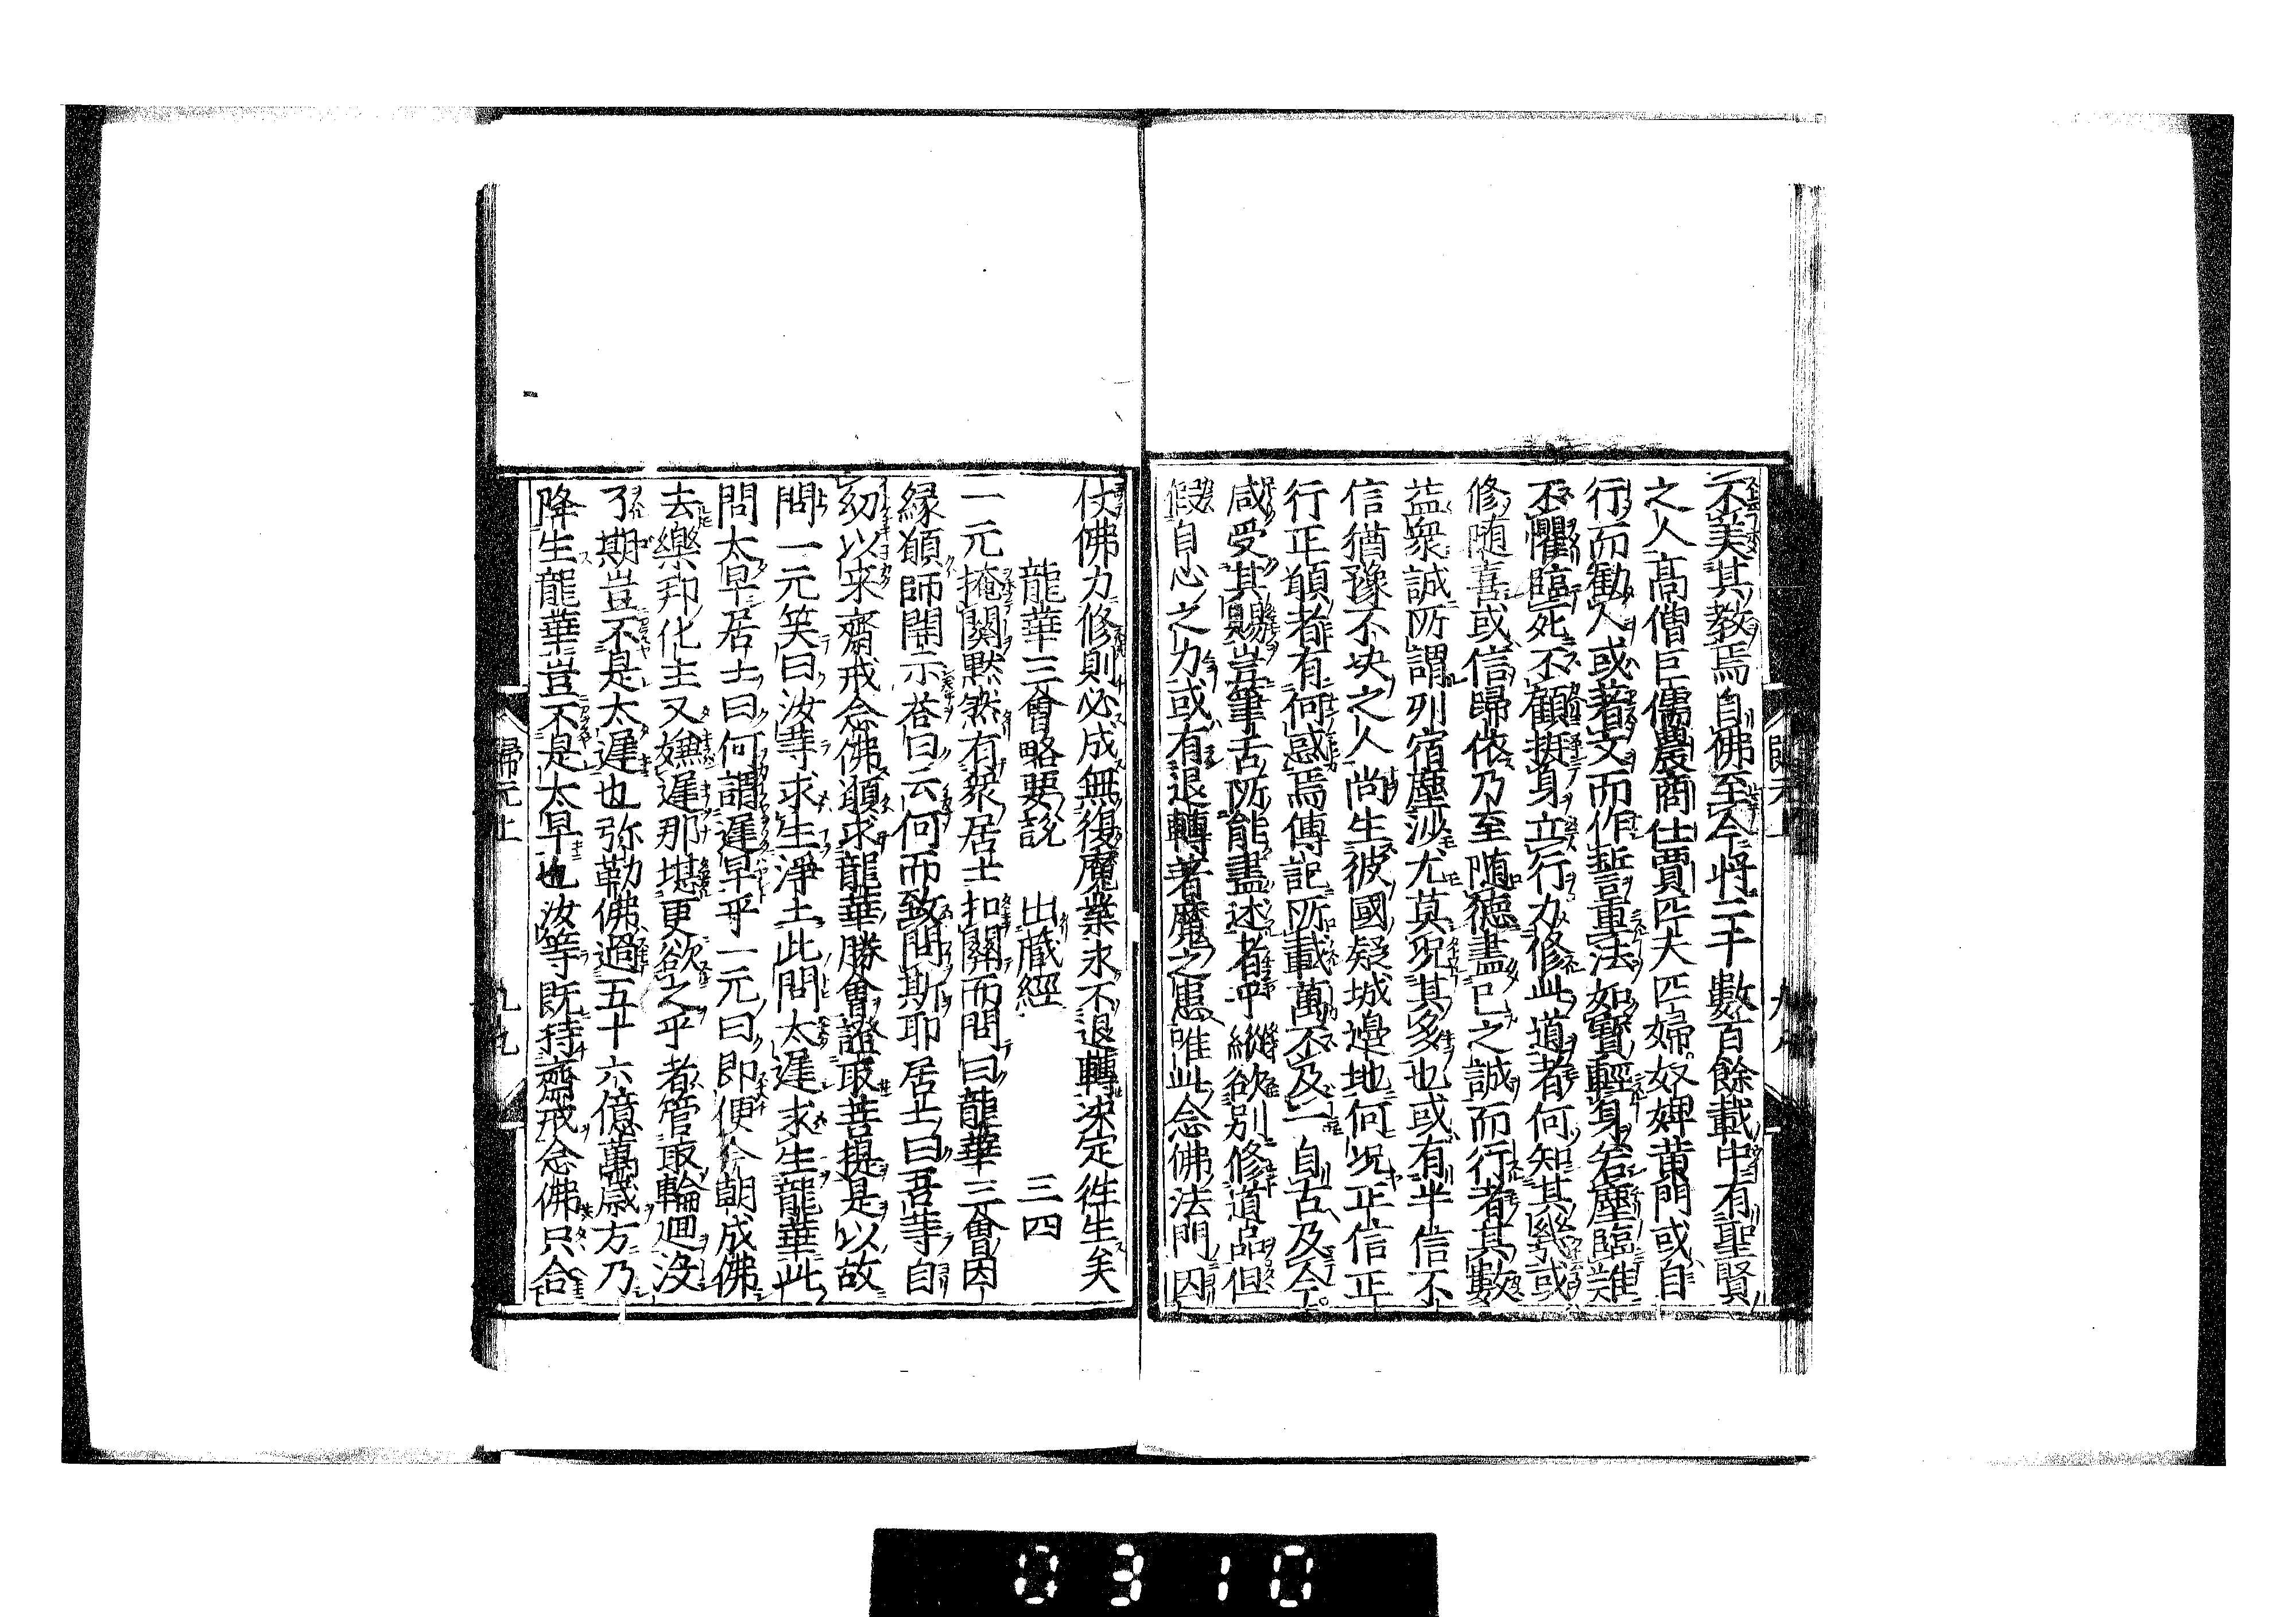 不美其教焉自佛至今將二千數百餘載中有聖賢
之人高僧巨儒農商仕賈匹夫匹婦奴婢黃門或自
行而勸人或著文而作誓重法如寶輕身若塵臨難
不懼臨死不顧挺身立行力修此道者何知其幾或
修隨喜或信歸依乃至隨德盡己之誠而行者其數
益衆誠所謂列宿塵沙尤莫况其多也或有半信不
信猶豫不決之人尚生彼國疑城邊地何况正信正
行正願者有何惑焉傳記所載萬不及一自古及今
咸受其賜豈筆舌所能盡述者乎縱欲別修道品但
假自心之力或有退轉著魔之患唯此念佛法門因
仗佛力修則必成無復魔業永不退轉決定徃生矣
龍華三會略要說 出藏經 三四
一元掩關默然有衆居士扣關而問曰龍華三會因
緣願師開示荅曰云何而致問斯耶居士曰吾等自
幼以來齋戒念佛願求龍華勝會證取菩提是以故
問一元笑曰汝等求生淨土此問太遲求生龍華此
問太早居士曰何謂遲早乎一元曰即便今朝成佛
去樂邦化主又嫌遲那堪更欲之乎者管取輪廻没
了期豈不是太遲也弥勒佛過五十六億萬歲方乃
降生龍華豈不是太早也汝等既持齋戒念佛只合
歸元上
九九
0310